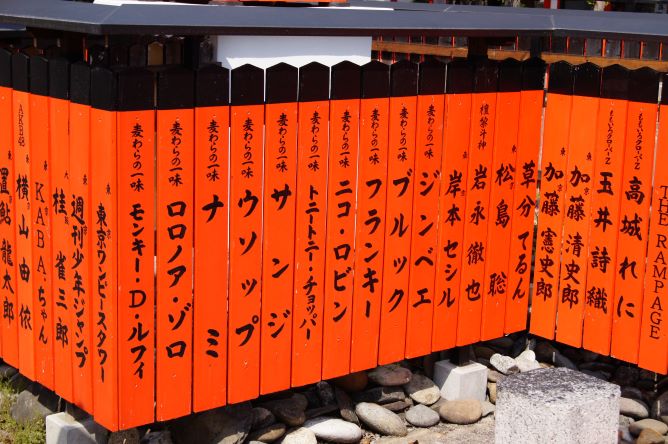 東京 置鮎龍太郎
AKB48 東京 横山由依
東京 KABA.ちゃん
大阪 桂雀三郎
東京 週刊少年ジャンプ
東京 東京ワンピースタワー
麦わらの一味 モンキー・D・ルフィ
麦わらの一味 ロロノア・ゾロ
麦わらの一味 ナミ
麦わらの一味 ウソップ
麦わらの一味 サンジ
麦わらの一味 トニートニー・チョッパー
麦わらの一味 ニコ・ロビン
麦わらの一味 フランキー
麦わらの一味 ブルック
麦わらの一味 ジンベエ
東京 岸本セシル
檀黎斗神 東京 岩永徹也
東京 松島聡
東京 草分てるん
東京 加藤憲史郎
東京 加藤清史郎
ももいろクローバーZ 東京 玉井詩織
ももいろクローバーZ 東京 高城れに
THE RAMPAGE